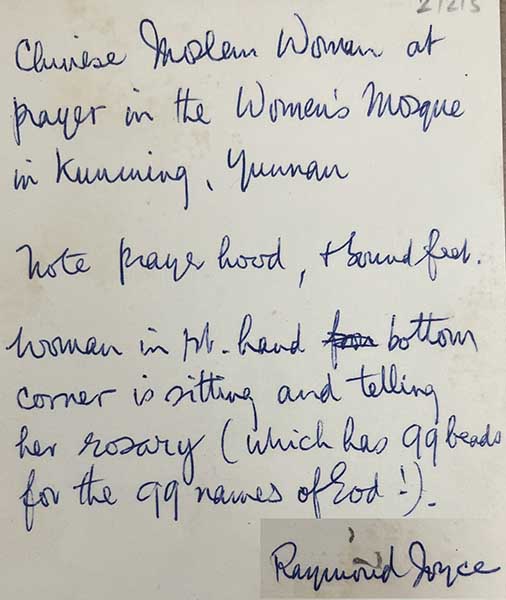 2/2/5
Chinese Moslem Woman at
prayer in the Women's Mosque
in Kunming, Yunnan
Note prayer hood, + bound feet.
Woman in rt. hand bottom
corner is sitting and telling
her rosary (which has 99 beads
for the 99 names of God!).
Raymond Joyce